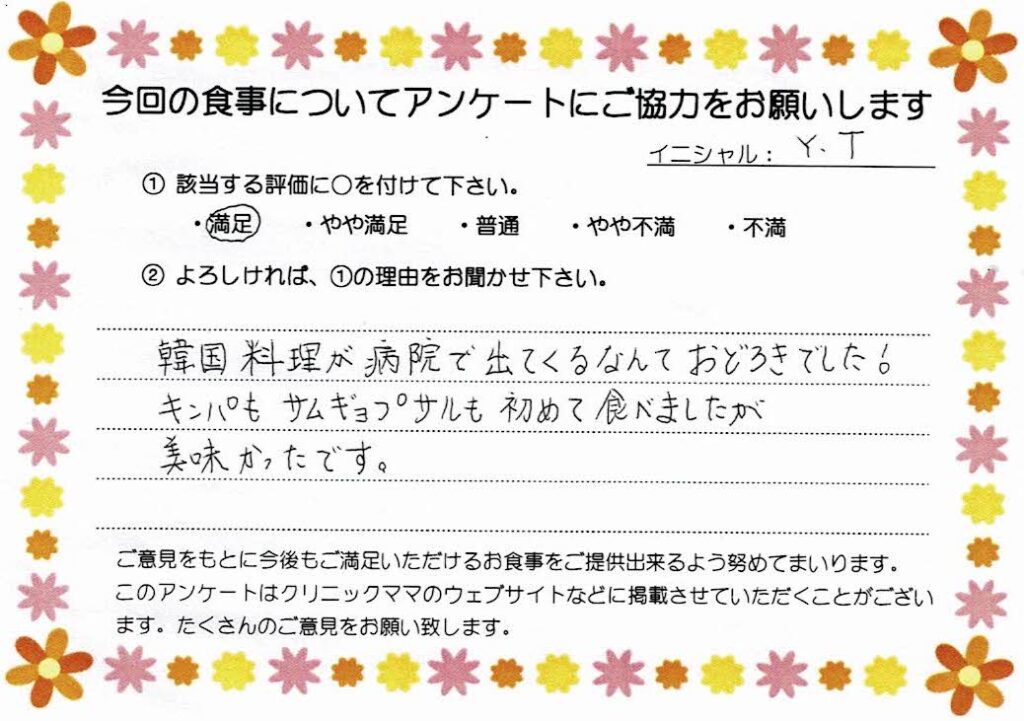 今回の食事についてアンケートにご協力をお願いします
イニシャル： Y.T
① 該当する評価に○を付けて下さい。
・満足 ・やや満足 ・普通 ・やや不満 ・不満
② よろしければ、①の理由をお聞かせ下さい。
韓国料理が病院で出てくるなんておどろきでした！
キンパもサムギョプサルも初めて食べましたが
美味かったです。
ご意見をもとに今後もご満足いただけるお食事をご提供出来るよう努めてまいります。
このアンケートはクリニックママのウェブサイトなどに掲載させていただくことがござい
ます。たくさんのご意見をお願い致します。